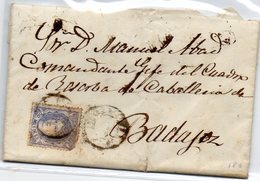 Sr. D. Manuel Abad
Comandante Gefe del Cuadro
de Reserva de Caballeria de
Badajoz